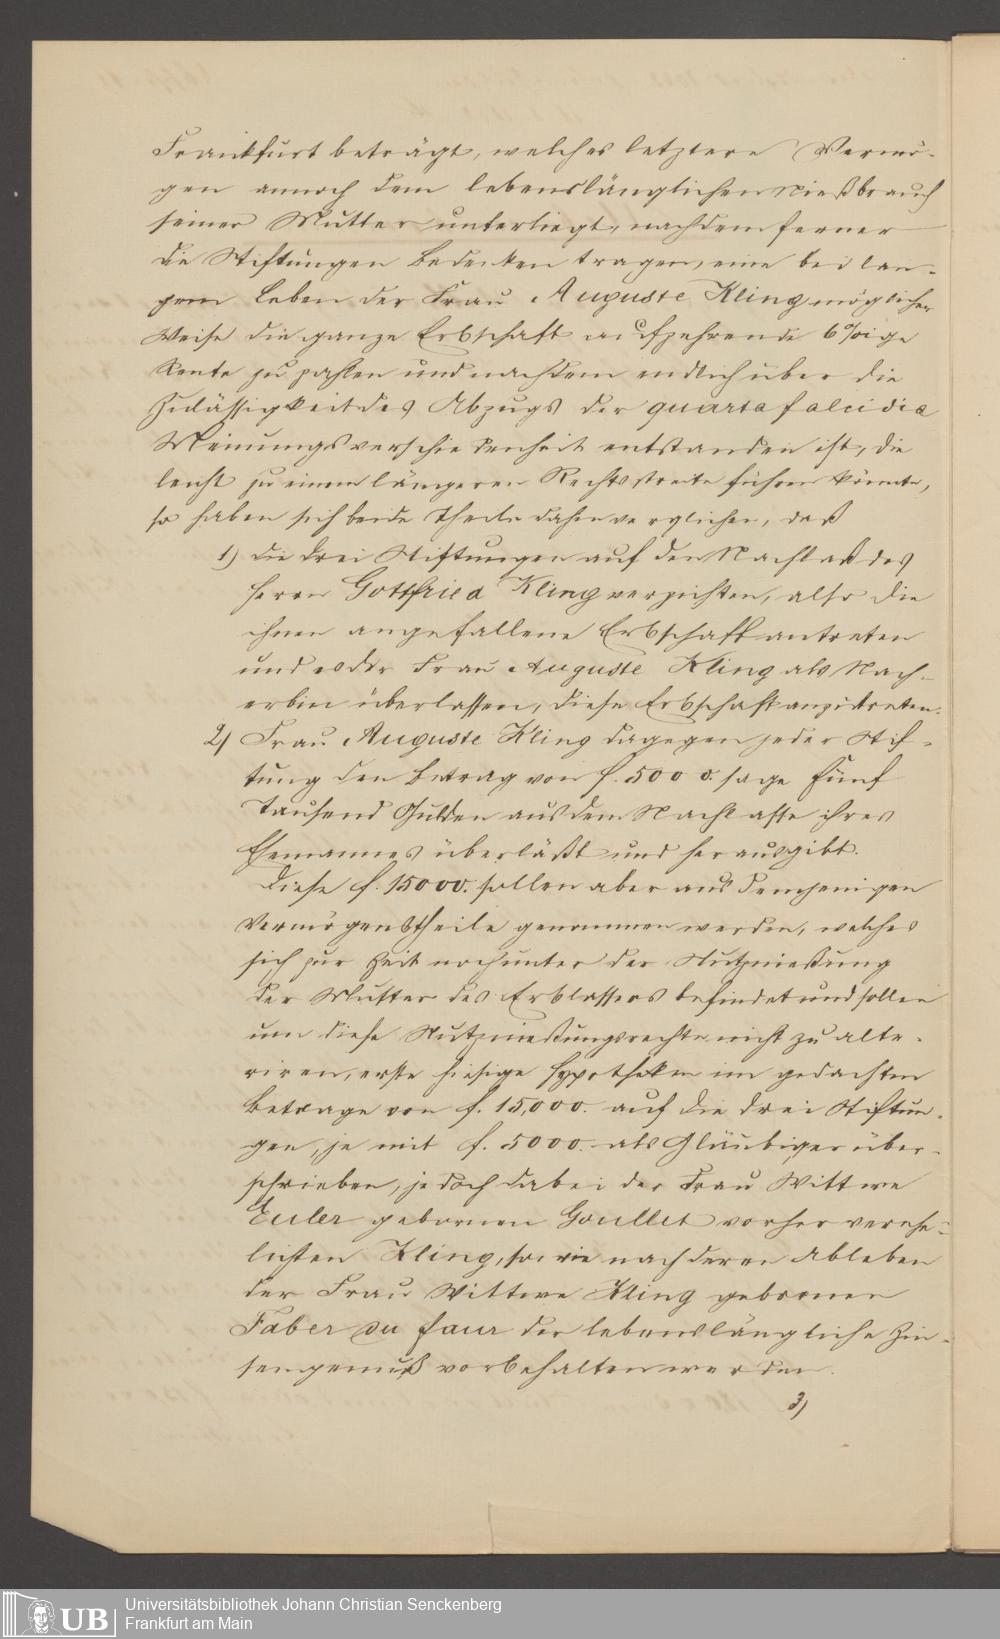 Frankfurt beträgt, welches letztere Vermö-
gen annoch dem lebenslänglichen Nießbrauch
seiner Mutter unterliegt, nachdem ferner
die Stiftungen Bedenken tragen, eine bei lan-
gem Leben der Frau Auguste Kling möglicher
Weise die ganze Erbschaft aufzehrende 6%ige
Rente zu zahlen und nachdem endlich über die
Zulässigkeit des Abzugs der quarta falcidia
Meinungsverschiedenheit entstanden ist, die
leicht zu einem längeren Rechtsstreite führen könnte,
so haben sich beide Theile dahin verglichen, daß
1) die drei Stiftungen auf den Nachlaß des
Herrn Gottfried Kling verzichten, also die
ihnen angefallene Erbschaft antreten
und es der Frau Auguste Kling als Nach-
erbin überlassen, diese Erbschaft anzutreten.
2) Frau Auguste Kling dagegen jeder Stif-
tung den Betrag von f. 5000. sage Fünf
Tausend Gulden aus dem Nachlasse ihres
Ehemannes überläßt und herausgibt.
Diese f. 15000. sollen aber aus demjenigen
Vermögenstheile genommen werden, welches
sich zur Zeit noch unter der Nutznießung
der Mutter des Erblassers befindet und sollen
um diese Nutznießungsrechte nicht zu alte-
riren, erste hiesige Hypotheken im gedachten
Betrage von f. 15,000. auf die drei Stiftun-
gen, je mit f. 5000. als Gläubiger über-
schrieben, jedoch dabei der Frau Wittwe
Euler gebornen Goullet vorher verehe-
lichten Kling, sowie nach deren Ableben
der Frau Wittwe Kling gebornen
Faber du faur der lebenslängliche Zin-
sengenuß vorbehalten werden.
3)
UB
Universitätsbibliothek Johann Christian Senckenberg
Frankfurt am Main